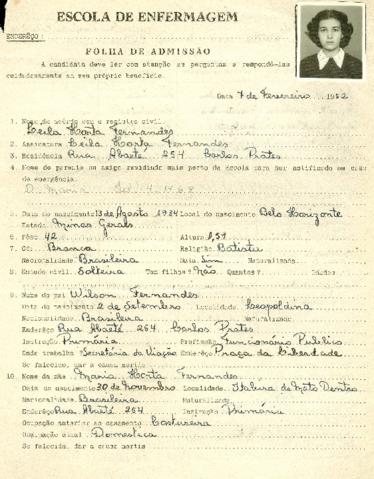 ESCOLA DE ENFERMAGEM
ENDERÊÇO:
FOLHA DE ADMISSÃO
A candidata deve ler com atenção as perguntas e respondê-las
cuidadosamente em seu próprio benefício.
Data 7 de Fevereiro 1952
1. Nome de acôrdo com o registro civil.
Leila Horta Fernandes
2. Assinatura Leila Horta Fernandes
3. Residência Rua Abaeté 254 Carlos Prates
4. Nome do parente ou amigo residindo mais perto da escola para ser notificado em caso
de emergência.
D. Maria
5. Data do nascimento 13 de Agosto 1934 Local do nascimento Belo Horizonte
Estado Minas Gerais
6. Pêso 42 Altura 1,51
7. Côr Branca Religião Batista
Nacionalidade Brasileira Nata Sim Naturalizada
8. Estado civil Solteira Tem filhos? Não Quantos? Idades
9. Nome do pai Wilson Fernandes
Data do nascimento 2 de Setembro Localidade Leopoldina
Nacionalidade Brasileira Naturalizado
Enderêço Rua Abaeté 254 Carlos Prates
Instrução Primária Profissão Funcionário Publico
Onde trabalha Secretaria da Viação Enderêço Praça da Liberdade
Se falecido, dar a causa mortis
10. Nome da mãe Maria Horta Fernandes
Data do nascimento 30 de Novembro Localidade Itabira de Mato Dentro
Nacionalidade Brasileira Naturalizada
Enderêço Rua Abaeté 254 Instrução Primária
Ocupação anterior ao casamento Costureira
Ocupação atual Domestica
Se falecida, dar a causa mortis